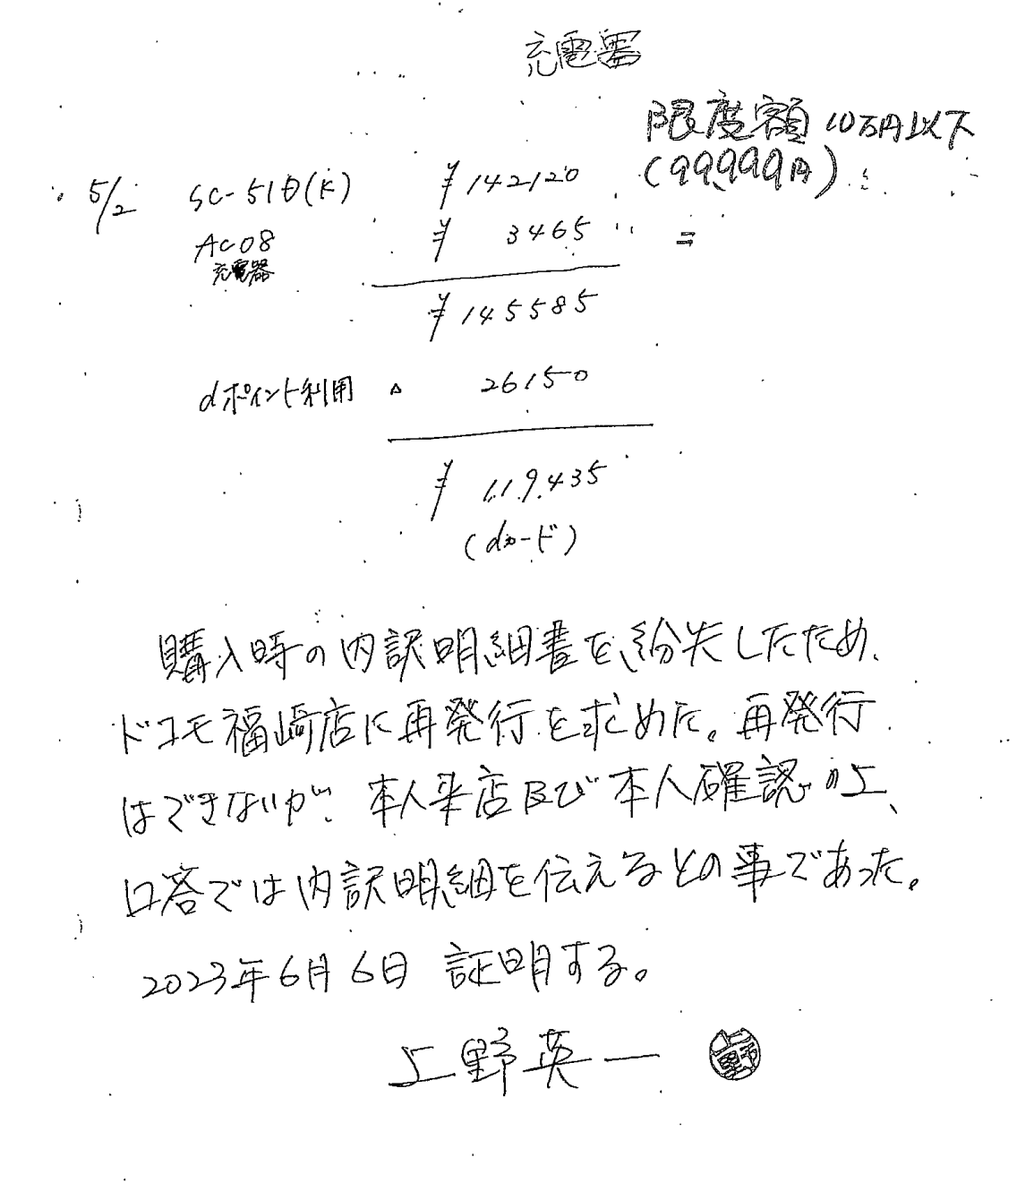 充電器
限度額 10万円以下
(99,999円)
5/2 SC-51D(K) ¥142120
AC08 ¥ 3465
充電器
¥145585
dポイント利用 △ 26150
¥ 119,435
(dカード)
購入時の内訳明細書を紛失したため、
ドコモ福崎店に再発行を求めた。再発行
はできないが、本人来店及び本人確認の上、
口答では内訳明細を伝えるとの事であった。
2023年6月6日 証明する。
上野英一 上野